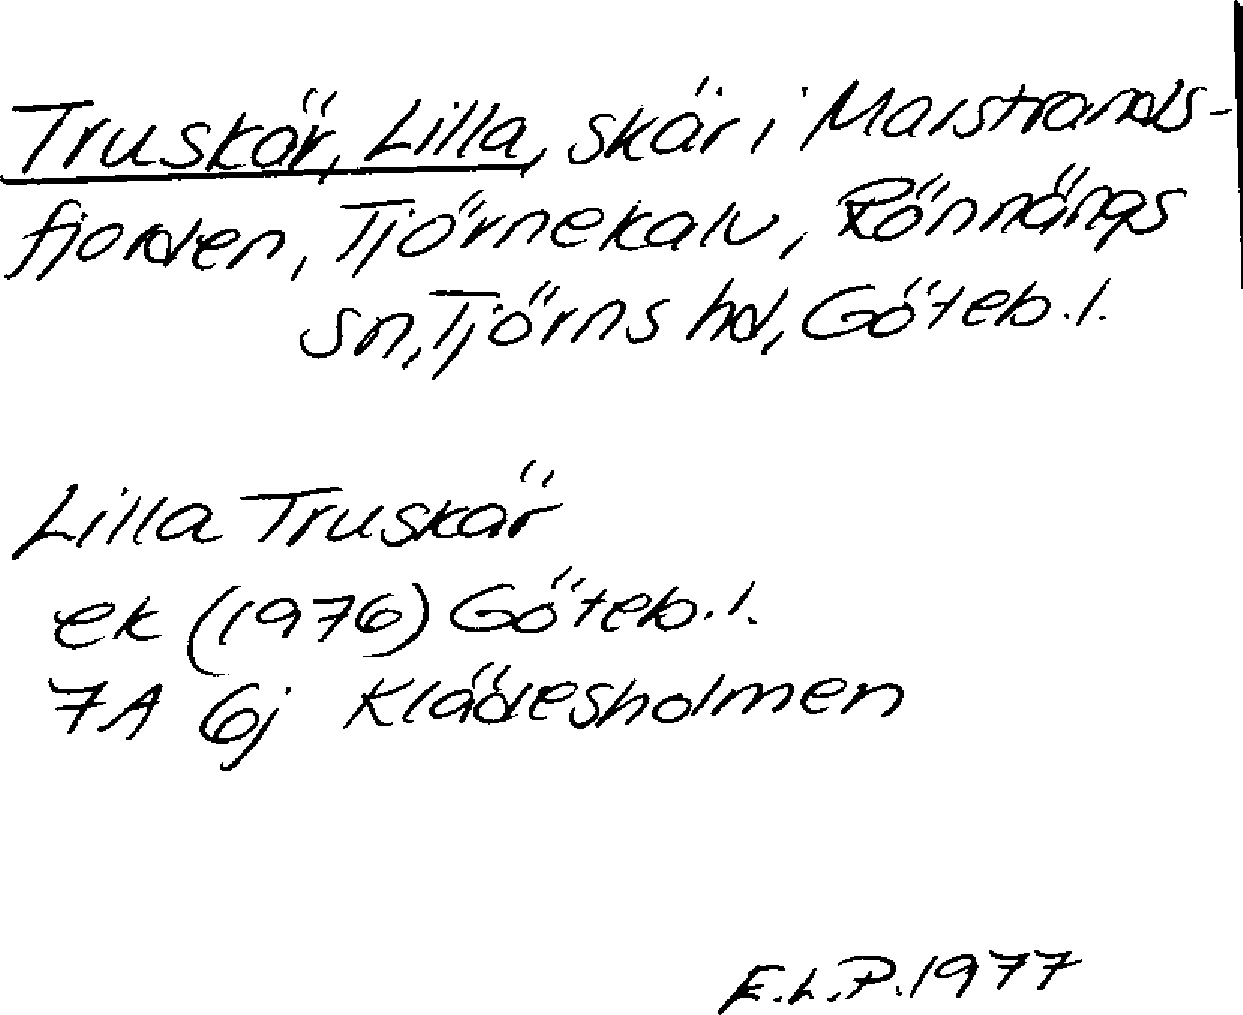 Truskär, Lilla, skär i Marstrands-
fjorden, Tjörnekalv, Rönnängs
sn, Tjörns hd, Göteb. l.
Lilla Truskär
ek (1976) Göteb. l.
7A 6j Klädesholmen
E.L.P. 1977